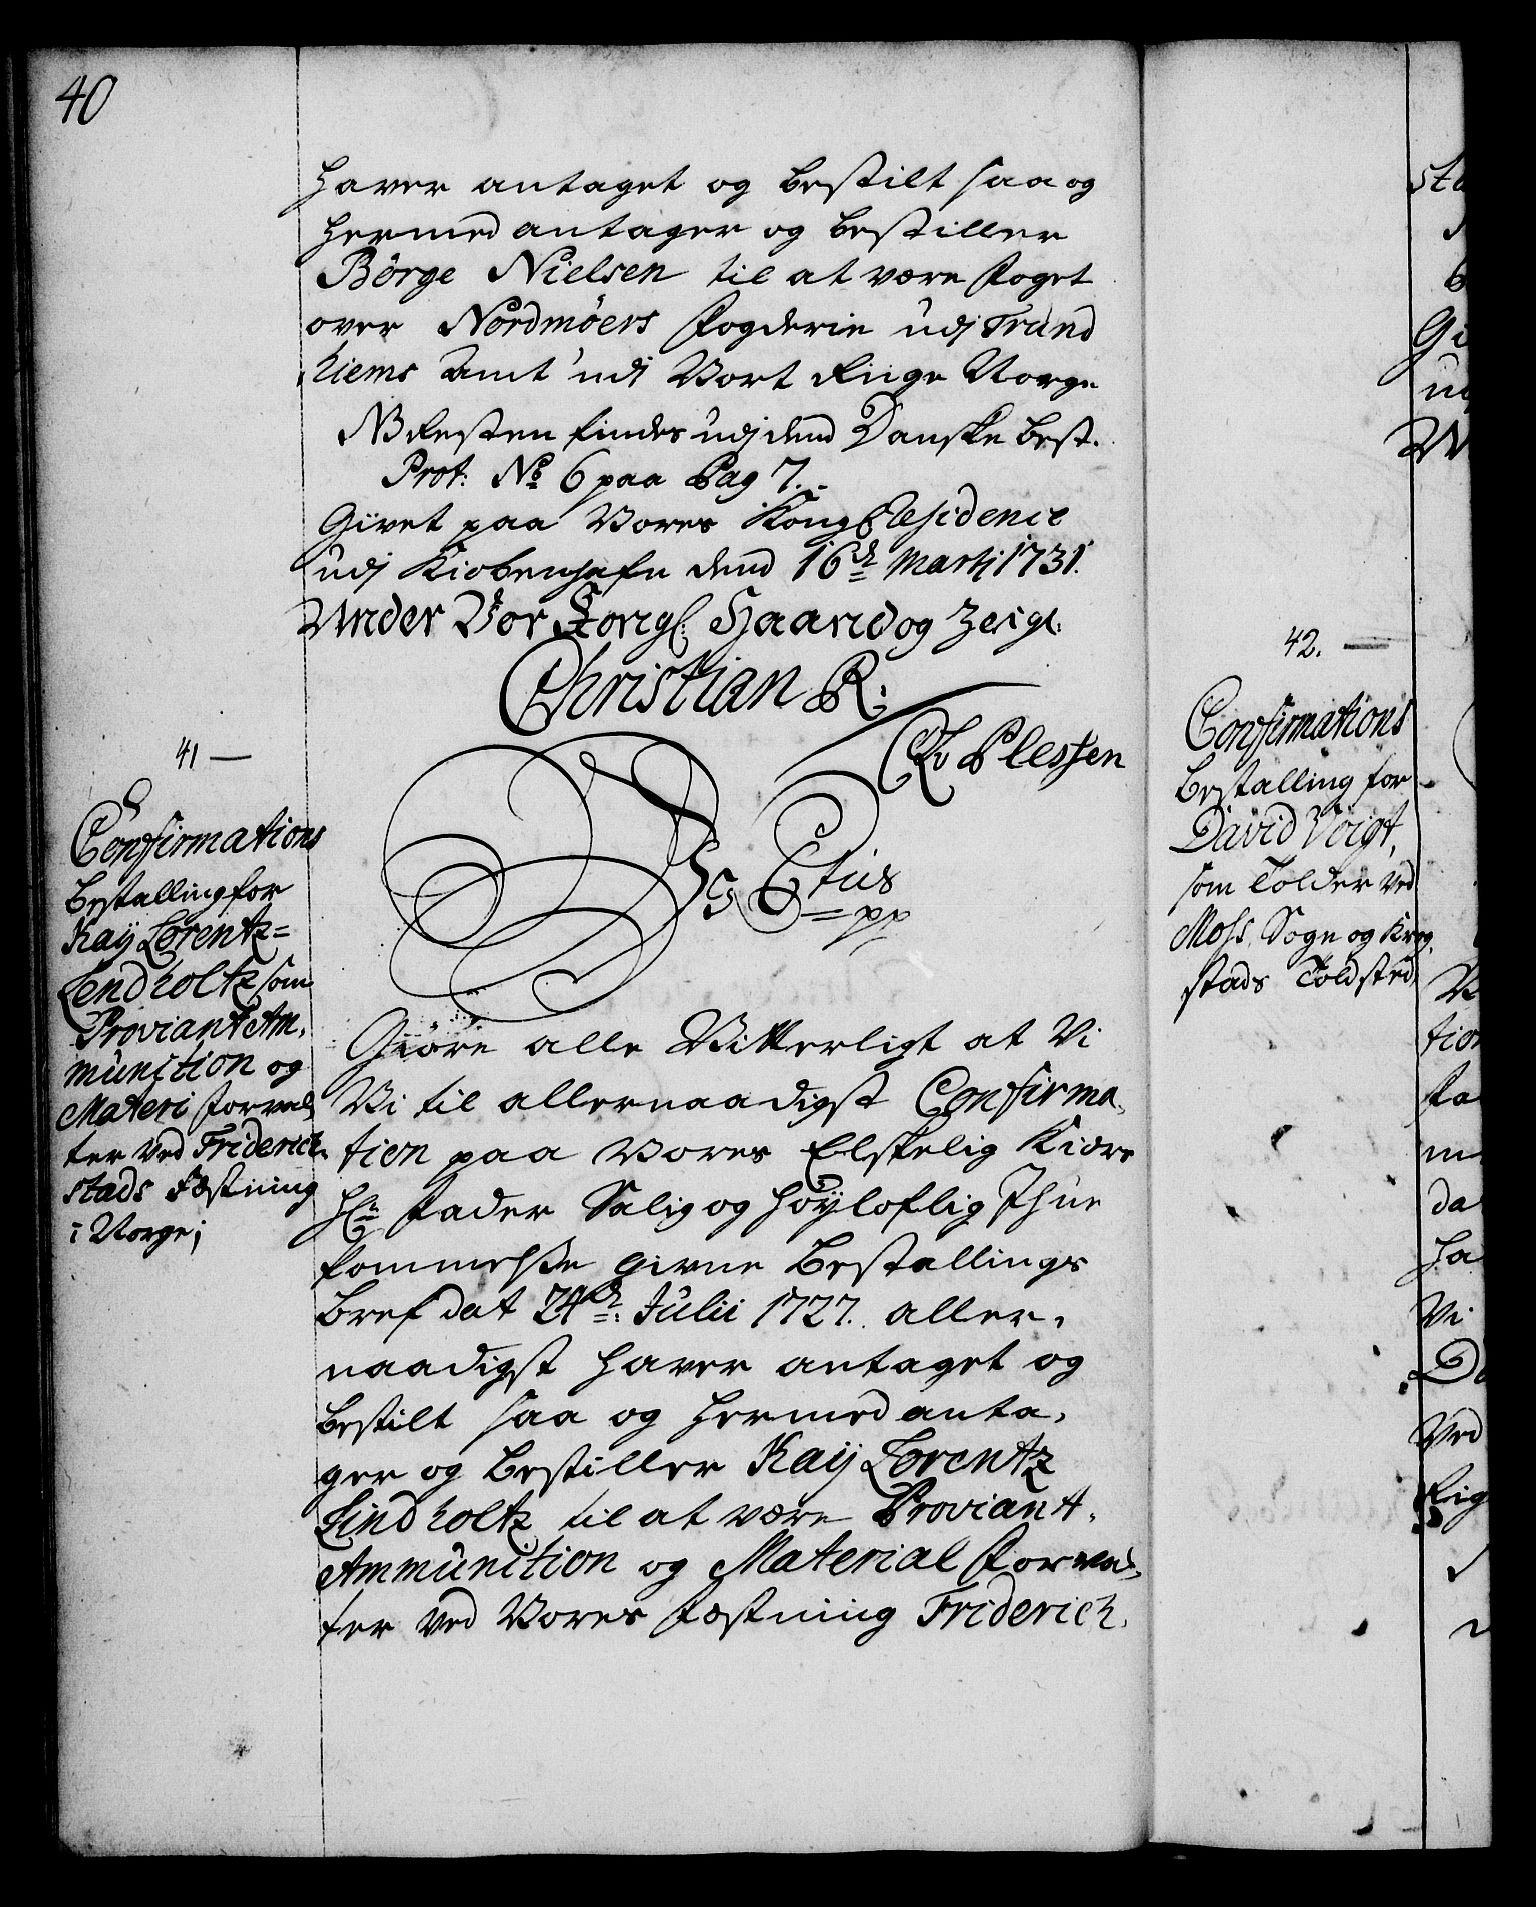 40
haver antaget og bestilt saa og
hermed antager og bestiller
Börge Nielsen til at være Foget
over Nordmöers Fogderie udj Trund
hiems Amt udi Vort Riige Norge
NB Resten findes udj dend Danske best.
Prot: No 6 paa Pag 7.
Givet paa Vores Kongl Residence
udj Kiobenhafn dend 16de Martj 1731.
Under Vor Kongl: Haand og Zeigl:
Christian R:
Plessen
41 —
Confirmations
Bestalling for
Kaÿ Lorentz=
Lendholtz som
Proviant Am,
munition og
Materi Forval,
ter ved Friderich,
stads Fæstning
i Norge;
C 6tus
pp
Giöre alle Vitterligt at Vi
Vi til allernaadigst Confirma,
tion paa Vores Elskelig Kiære
Hr Fader Salig og Höÿloflig Ihue
kommelße givne Bestallings
Bref dat 24de: Julii 1727. aller,
naadigst haver antaget og
bestilt saa og hermed anta,
ger og bestiller Kaÿ Lorentz
Lindholtz til at være Proviant,
Ammunition og Material Forval,
ter ved Vores Fæstning Friderich,
42. —
Confirmations
Bestalling for
David Voigt,
som Tolder ved
Moss, Sogn og Krog,
stads Toldsted,